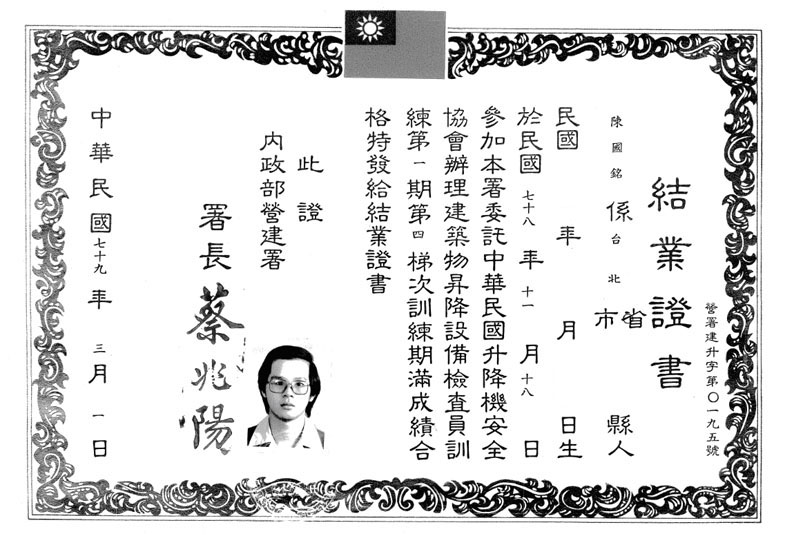 結業證書
營署建升字第〇一九五號
陳國銘係台北省市縣人
民國 年 月 日生
於民國七十八年十一月十八日
參加本署委託中華民國升降機安全
協會辦理建築物昇降設備檢查員訓
練第一期第四梯次訓練期滿成績合
格特發給結業證書
此證
內政部營建署
署長蔡兆陽
中華民國七十九年三月一日